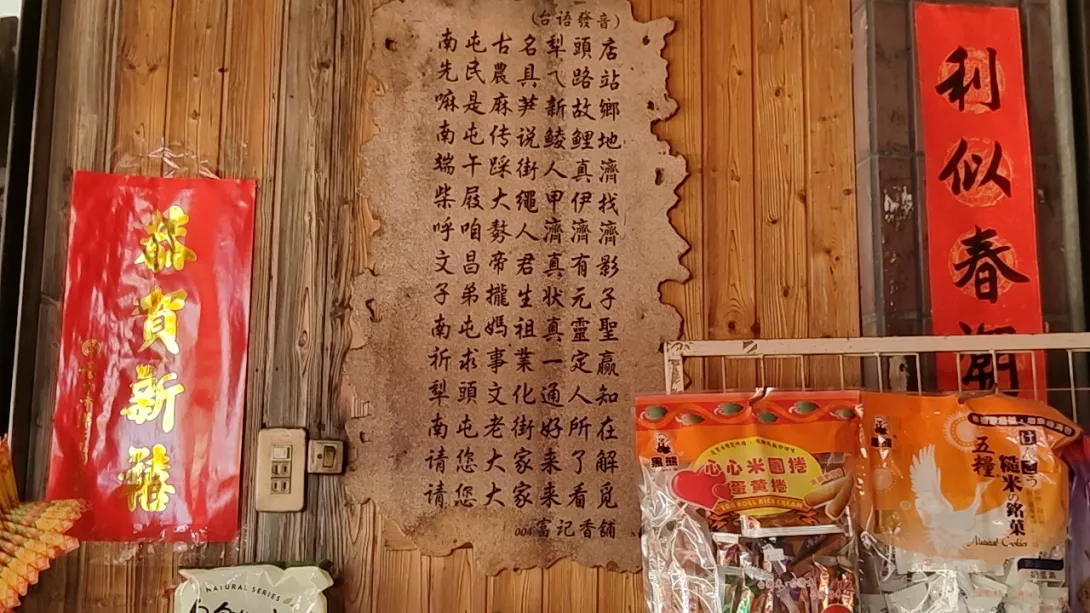 (台语發音)
南屯古名犁頭店
先民農具ㄟ路站
嘛是麻笋新故鄉
南屯传说鯪鯉地
端午踩街人真濟
柴屐大繩甲伊找
呼咱勢人濟濟濟
文昌帝君真有影
子弟攏生状元子
南屯媽祖真靈聖
祈求事業一定贏
犁頭文化通人知
南屯老街好所在
请您大家来了解
请您大家来看覓
004富記香舖
恭賀新禧
利似春潮
黑熊
心心米國捲
蛋黃捲
EGG ROLL RICE CREAM
五糧
糙米の銘菓
Natural Cookies
奶蛋素
NATURAL SERIES